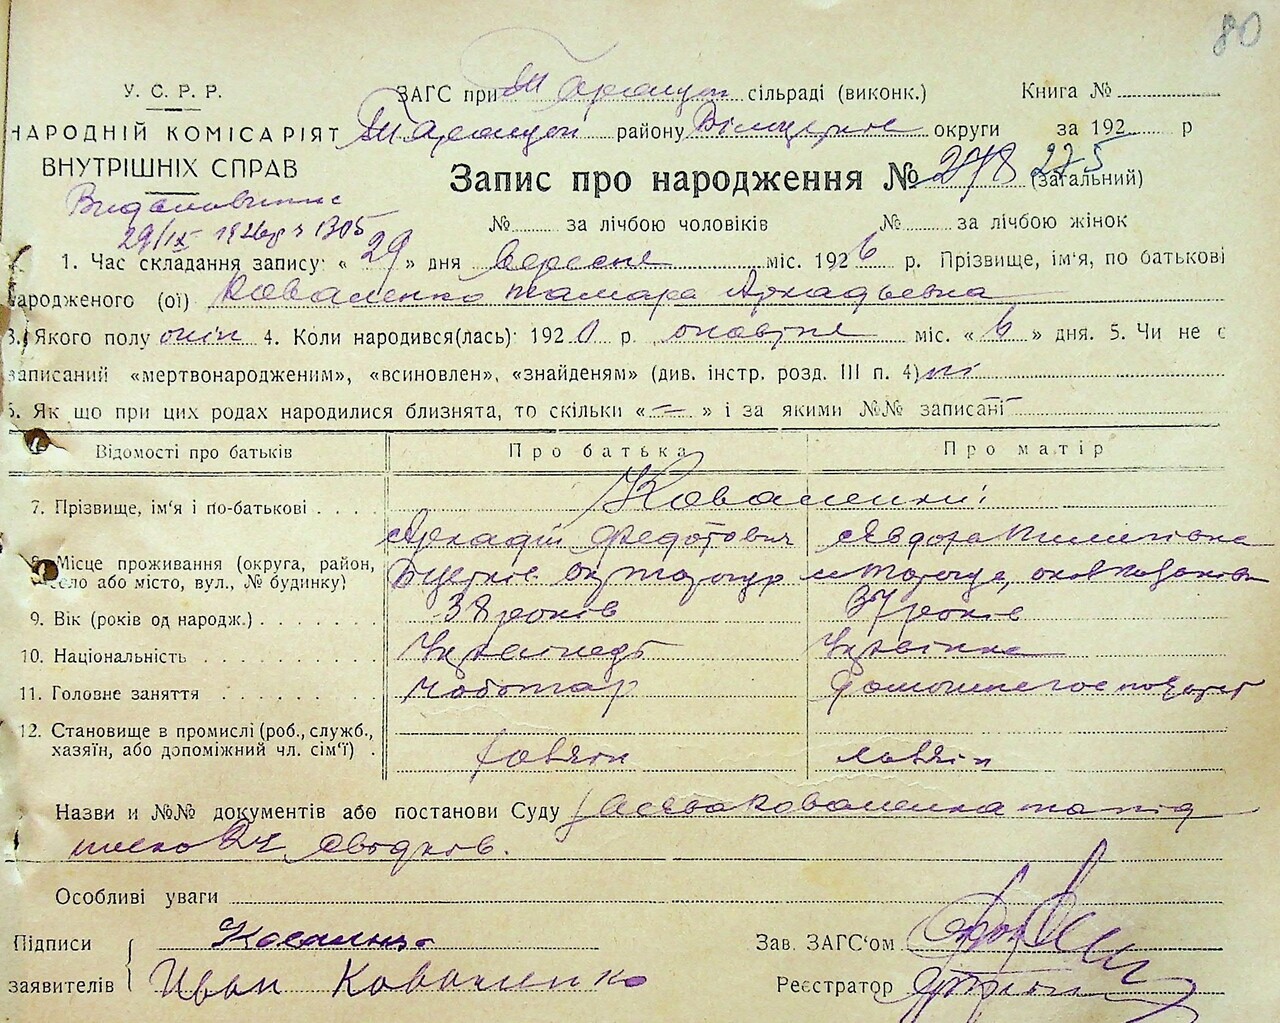 80
У. С. Р. Р.
ЗАГС при Таращан. сільраді (виконк.) Книга №
НАРОДНІЙ КОМІСАРІЯТ Таращан району Білоцерків округи за 192 р
ВНУТРІШНІХ СПРАВ
Запис про народження № 278 275 (загальний)
29/IX 1926 р 1305
№ за лічбою чоловіків № за лічбою жінок
1. Час складання запису: « 29 » дня вересня міс. 1926 р. Прізвище, ім'я, по батькові
народженого (ої) Коваленко Тамара Аркадьевна
3. Якого полу жін 4. Коли народився(лась): 1920 р. жовтня міс. « 6 » дня. 5. Чи не є
записаний «мертвонародженим», «всиновлен», «знайденям» (див. інстр. розд. III п. 4) ні
6. Як що при цих родах народилися близнята, то скільки « — » і за якими №№ записані
Відомості про батьків Про батька Про матір
7. Прізвище, ім'я і по-батькові Коваленки:
Аркадій Федотович Явдоха
8. Місце проживання (округа, район, село або місто, вул., № будинку)
9. Вік (років од народж.) 38 років 37 років
10. Національність Українець Українка
11. Головне заняття Чоботар
12. Становище в промислі (роб., служб., хазяїн, або допоміжний чл. сім'ї) хазяін хазяін
Назви и №№ документів або постанови Суду Заява Коваленка та під
писка 2х свідків.
Особливі уваги
Підписи заявителів Коваленко
Иван Коваленко
Зав. ЗАГС'ом
Реєстратор